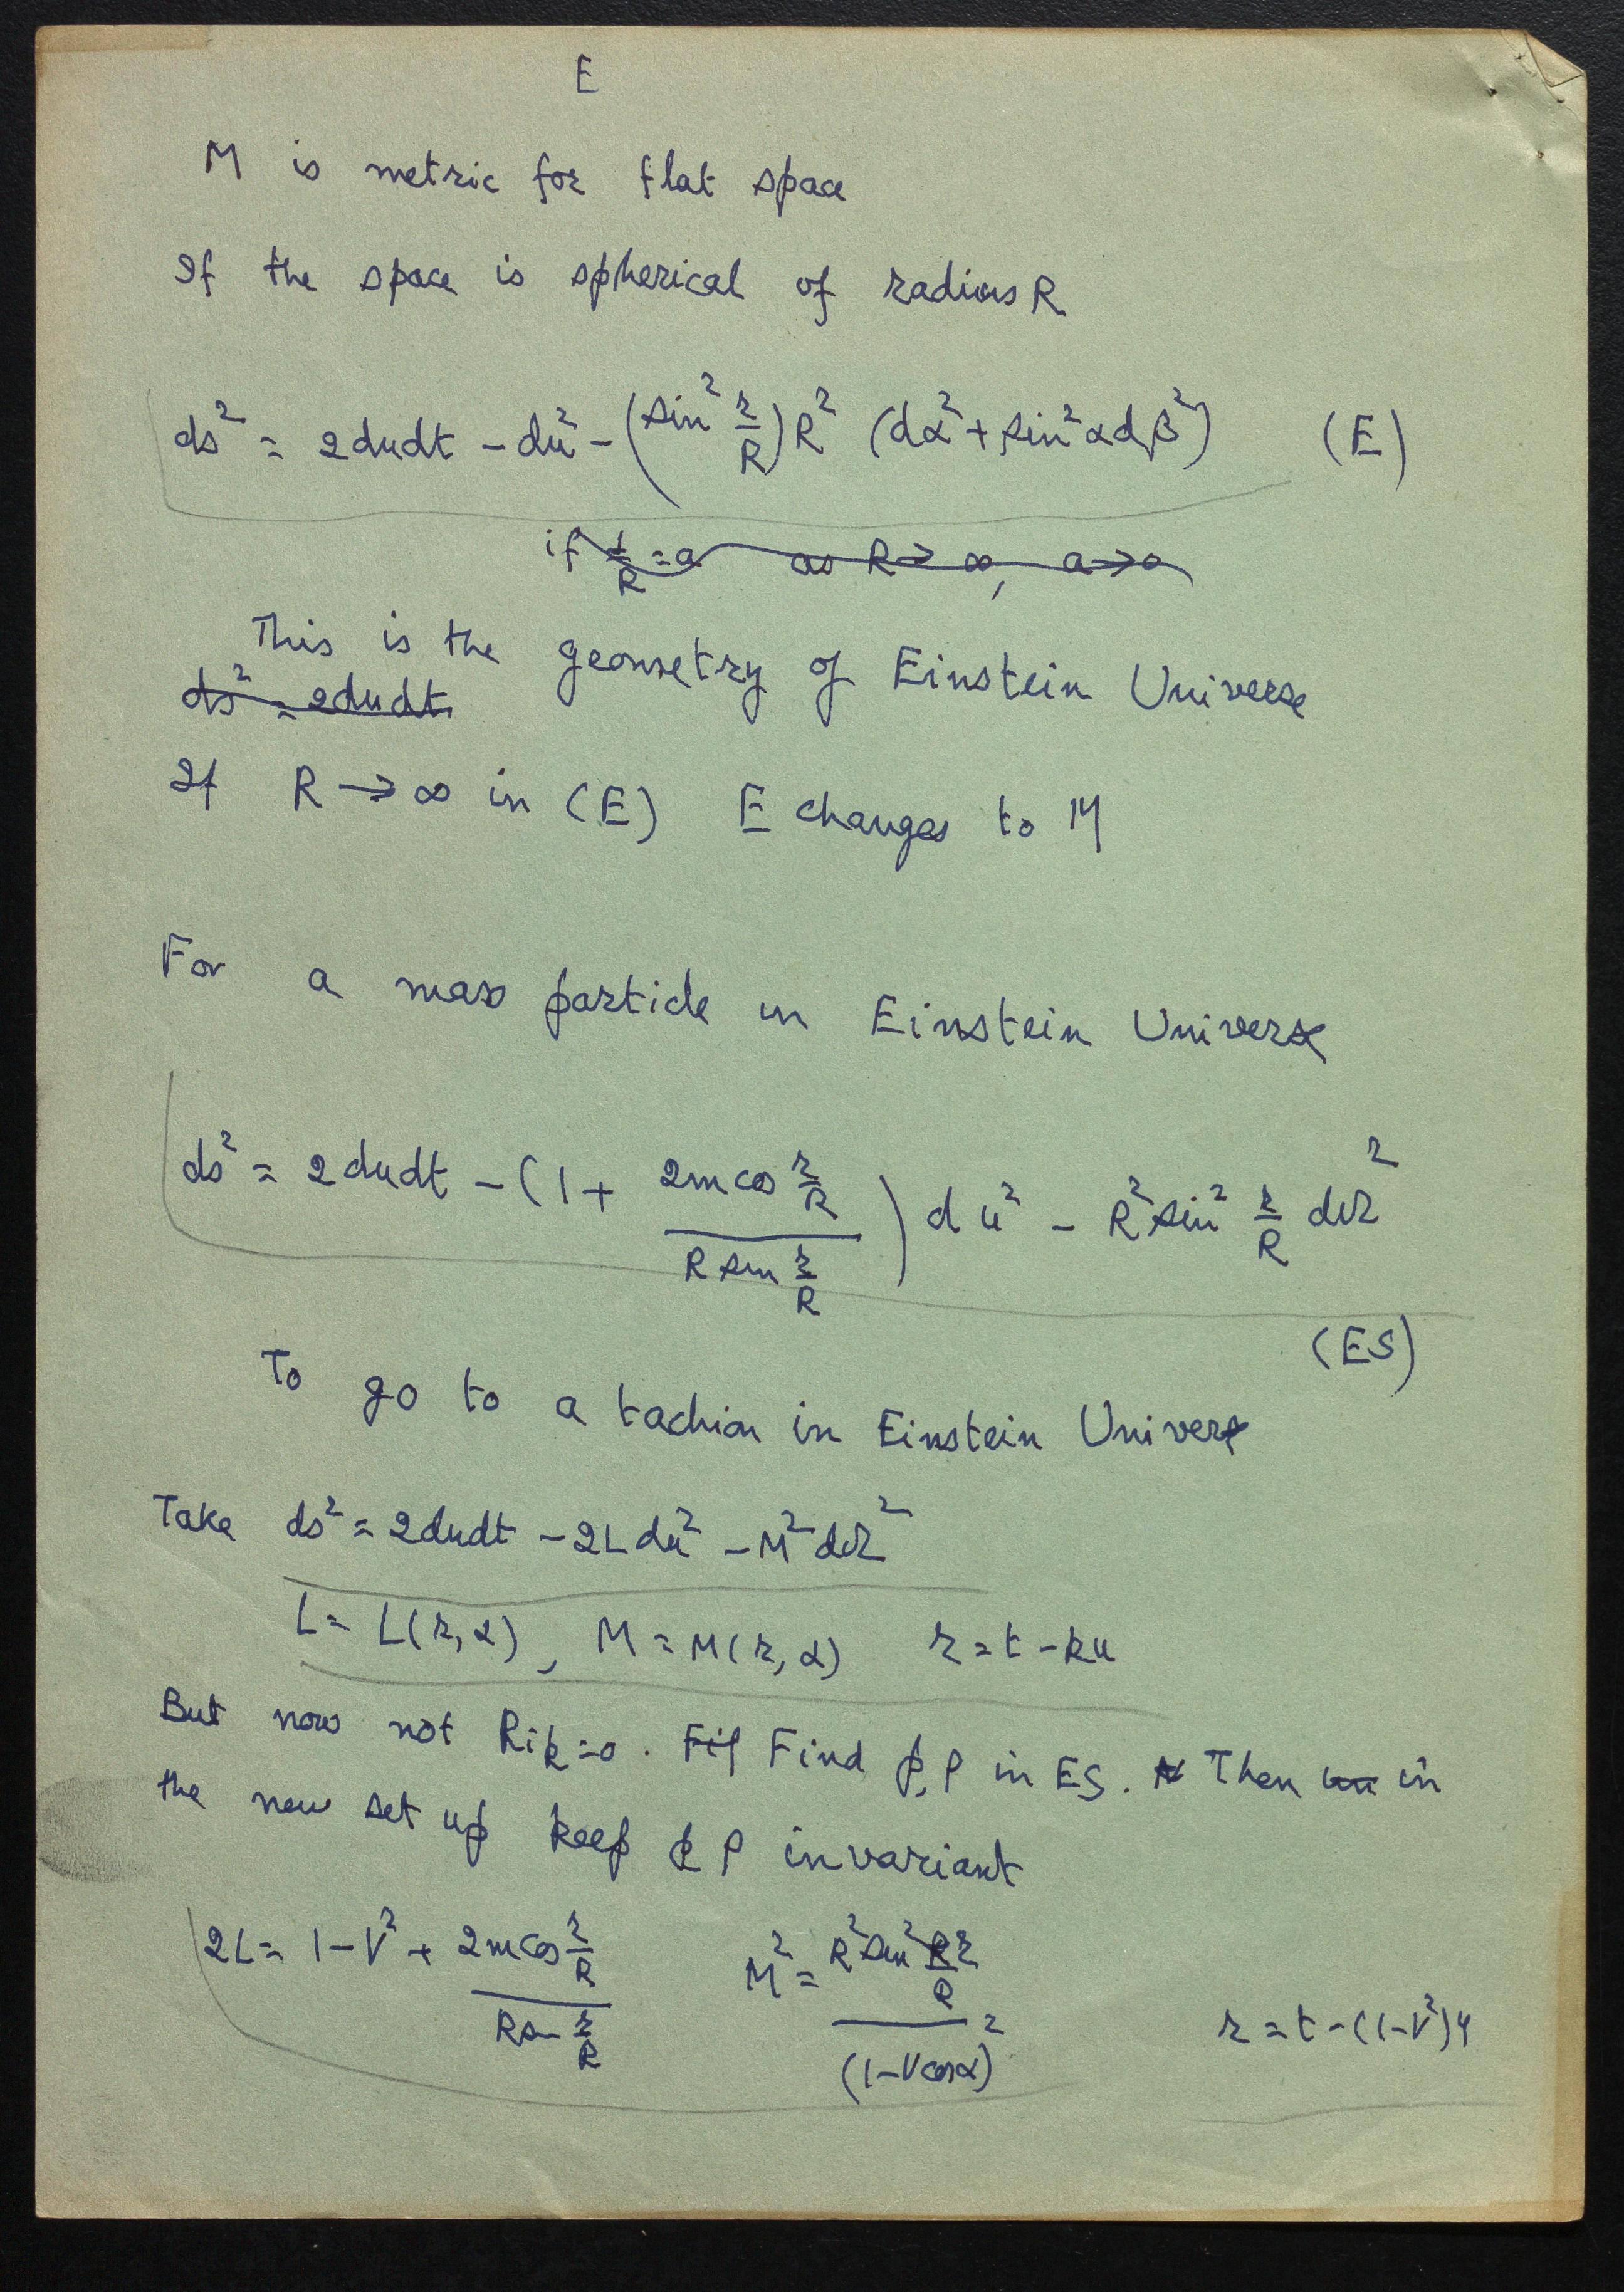 E
M is metric for flat space
If the space is spherical of radius R
ds² = 2dudt - du² - (sin² r/R) R² (dα² + sin²α dβ²) (E)
if 1/R = a as R → ∞, a → 0
This is the geometry of Einstein Universe
ds² = 2dudt
If R → ∞ in (E) E changes to M
For a mass particle in Einstein Universe
ds² = 2dudt - (1 + 2m cos r/R / R sin r/R) du² - R² sin² r/R dΩ²
(ES)
To go to a tachion in Einstein Universe
Take ds² = 2dudt - 2L du² - M² dΩ²
L = L(r, α), M = M(r, α) r = t - ku
But now not Rik = 0. Fif Find p, ρ in ES. N Then in
the new set up keep p ρ invariant
2L = 1 - V² + 2m cos r/R / R sin r/R M² = R² sin² r/R / (1 - V cos α)² r = t - (1 - V²)u